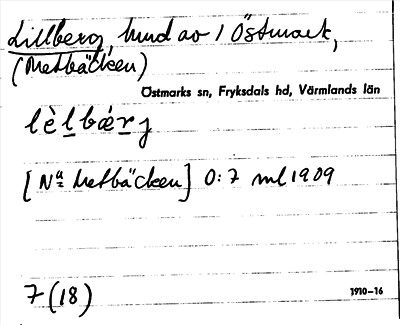 Lillberg, hmd av 1 Östmark,
(Metbäcken)
Östmarks sn, Fryksdals hd, Värmlands län
lèlbærj
[Nª Metbäcken] 0:7 ml 1909
7 (18)
1910–16